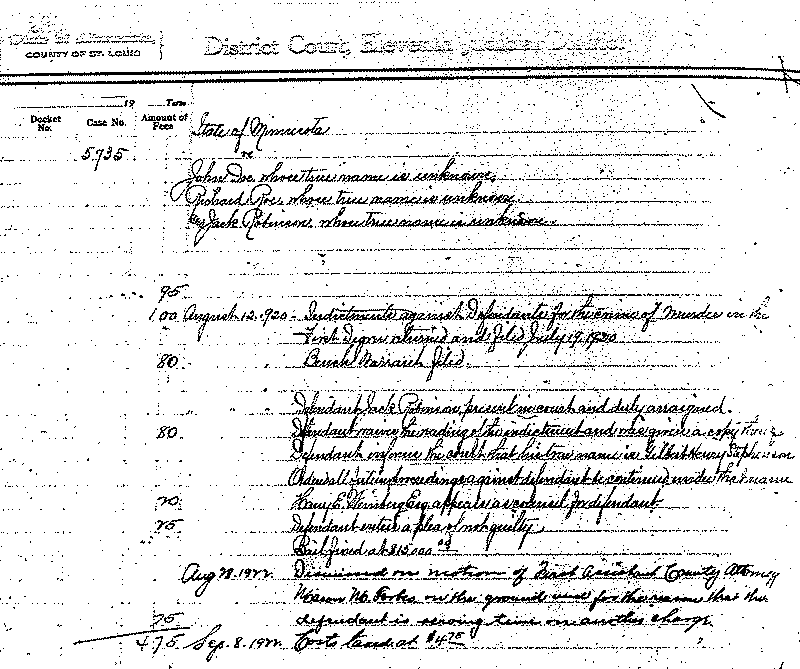 COUNTY OF ST. LOUIS
District Court, Eleventh Judicial District
19 Term
Docket No. Case No. Amount of Fees
State of Minnesota
5735 vs
John Doe whose true name is unknown,
Richard Roe whose true name is unknown
Jack Robinson, whose true name is unknown.
95
1 00 August 12, 1920 - Indictments against Defendants for the crime of Murder in the
First Degree returned and filed July 19, 1920
80 " Bench Warrant filed.
" " Defendant Jack Robinson, present in court and duly arraigned.
80 Defendant waives the reading of the indictment and was given a copy
Defendant informs the court that his true name is Gilbert Henry Stephenson
Orders all future proceedings against defendant be continued under that name
20 Harry E. Weinberg Esq appears as counsel for defendant
25 Defendant enters a plea of not guilty.
Bail fixed at $15,000 00
Aug 28, 1922 Dismissed on motion of First Assistant County Attorney
Mason M. Forbes on the ground and for the reason that the
75 defendant is serving time on another charge
4 75 Sep. 8, 1922 Costs taxed at $4 75